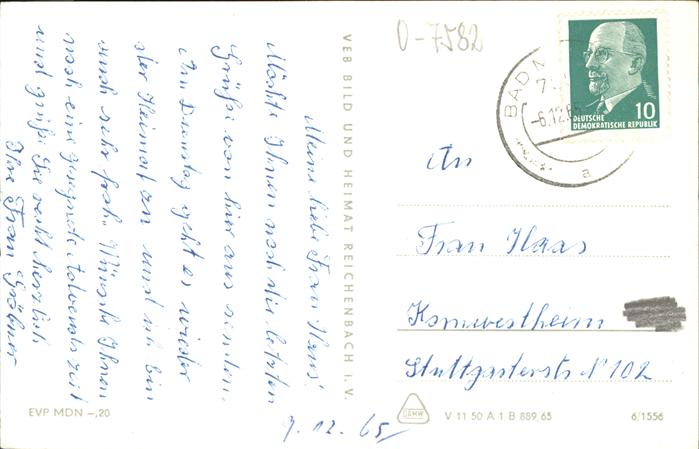 Meine liebe Frau Haas!
Möchte Ihnen noch die letzten
Grüße von hier aus senden.
Am Dienstag geht es wieder
der Heimat zu und ich bin
auch sehr froh. Wünsche Ihnen
noch eine gesegnete Adventszeit
und grüße Sie recht herzlich
Ihre Frau
VEB BILD UND HEIMAT REICHENBACH I. V.
0-7582
BAD
-6.12.65
a
10
DEUTSCHE
DEMOKRATISCHE REPUBLIK
An
Frau Haas
Kornwestheim
Stuttgarterstr N° 102
EVP MDN -,20
7.12.65
V 11 50 A 1 B 889/65
6/1556